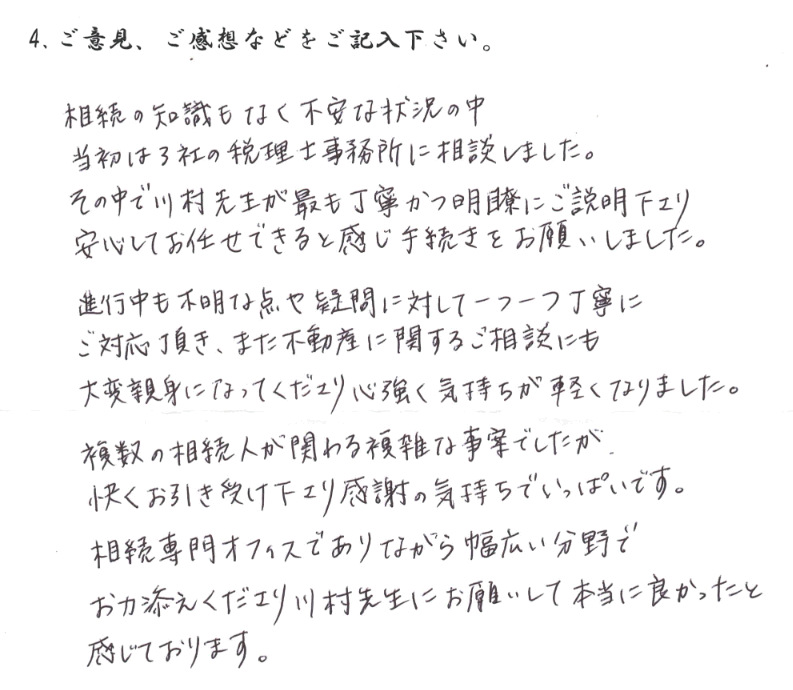 4、ご意見、ご感想などをご記入下さい。
相続の知識もなく不安な状況の中
当初は3社の税理士事務所に相談しました。
その中で川村先生が最も丁寧かつ明瞭にご説明下さり
安心してお任せできると感じ手続きをお願いしました。
進行中も不明な点や疑問に対して一つ一つ丁寧に
ご対応頂き、また不動産に関するご相談にも
大変親身になってくださり心強く気持ちが軽くなりました。
複数の相続人が関わる複雑な事案でしたが、
快くお引き受け下さり感謝の気持ちでいっぱいです。
相続専門オフィスでありながら幅広い分野で
お力添えくださり川村先生にお願いして本当に良かったと
感じております。